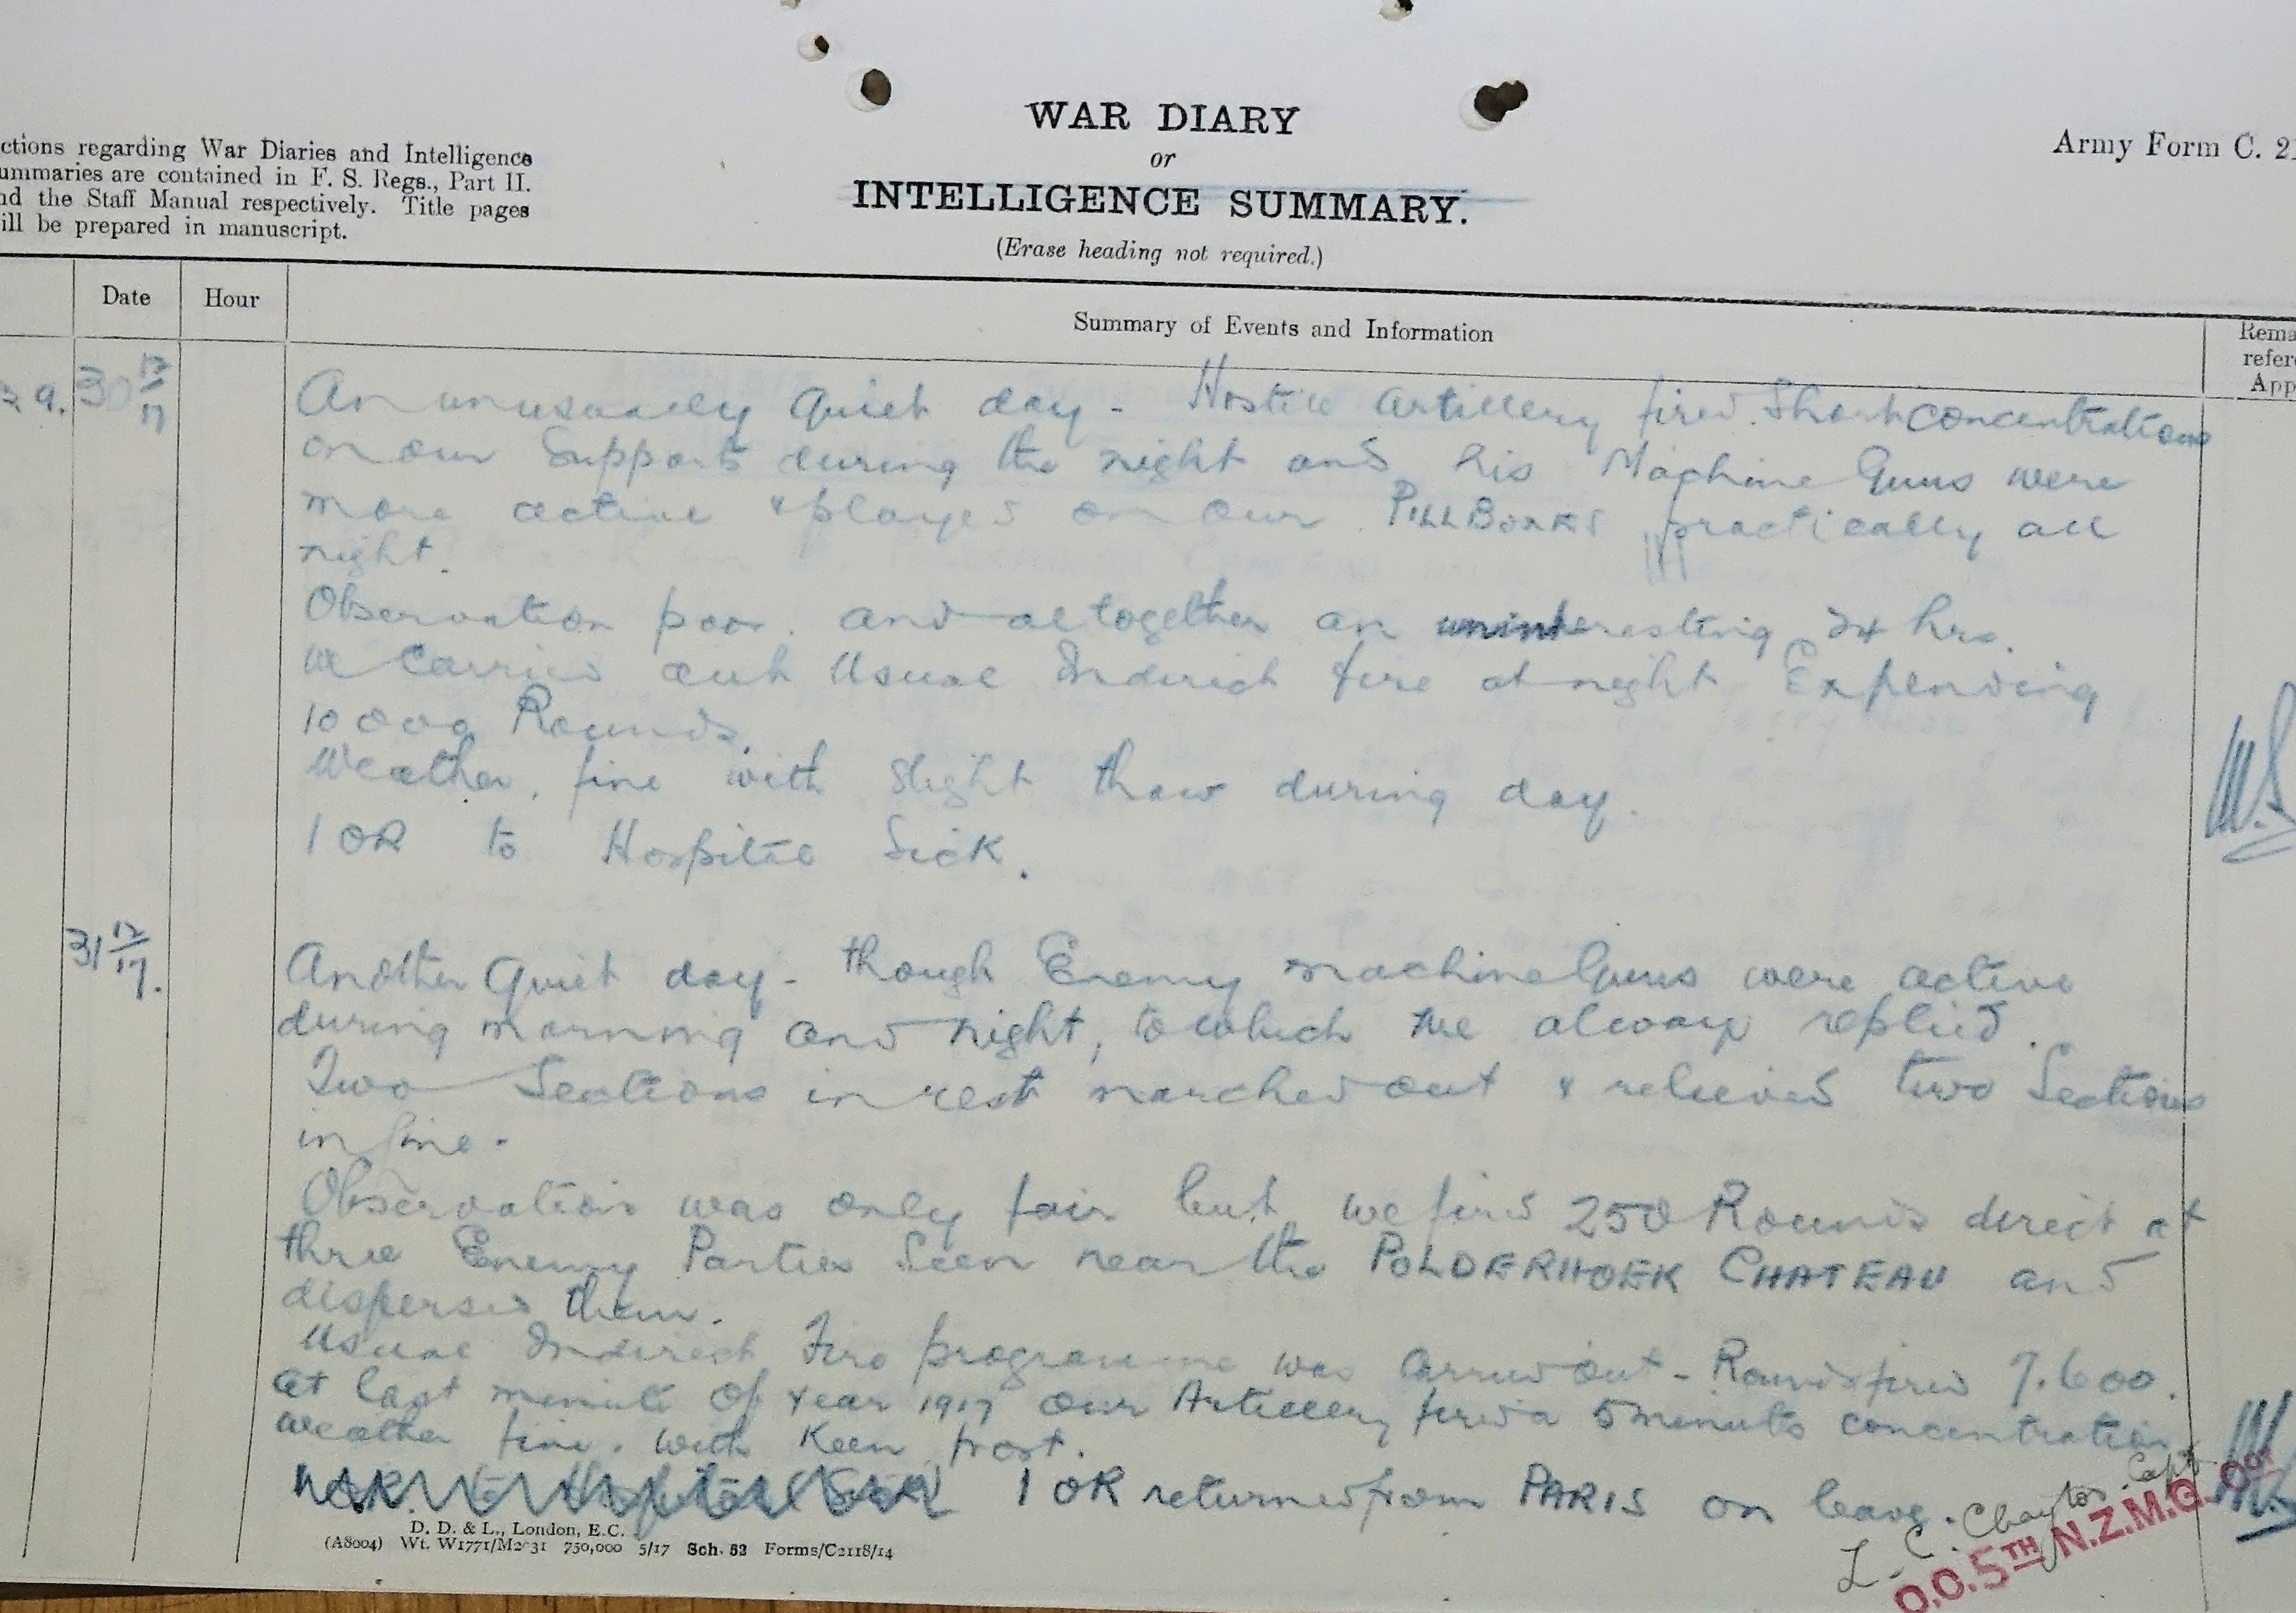 WAR DIARY
or
INTELLIGENCE SUMMARY.
(Erase heading not required.)
Army Form C. 21
ctions regarding War Diaries and Intelligence
ummaries are contained in F. S. Regs., Part II.
nd the Staff Manual respectively. Title pages
ill be prepared in manuscript.
Date Hour Summary of Events and Information
Rema
refer
App
9. 30 12/17 An unusually Quiet day - Hostile Artillery fired Short concentrations
on our Supports during the night and his Machine Guns were
more active & played on our PILLBOXES practically all
night.
Observation poor. and altogether an uninteresting 24 hrs.
We Carried out Usual Indirect fire at night Expending
10000 Rounds.
Weather. fine with Slight thaw during day.
1 OR to Hospital Sick.
31 12/17. Another Quiet day - though Enemy machine Guns were active
during morning and night, to which we always replied.
Two Sections in rest marched out & relieved two Sections
in line.
Observation was only fair but we fired 250 Rounds direct at
three Enemy Parties Seen near the POLDERHOEK CHATEAU and
dispersed them.
Usual Indirect Fire programme was carried out - Rounds fired 7.600.
At last minute of Year 1917 our Artillery fired a 5 minute concentration
Weather fine. with Keen frost.
1 OR returned from PARIS on leave.
L. C. Chaytor. Capt
O.O. 5TH N.Z.M.G. Coy
D. D. & L., London, E.C.
(A8004) Wt. W1771/M2031 750,000 5/17 Sch. 52 Forms/C2118/14